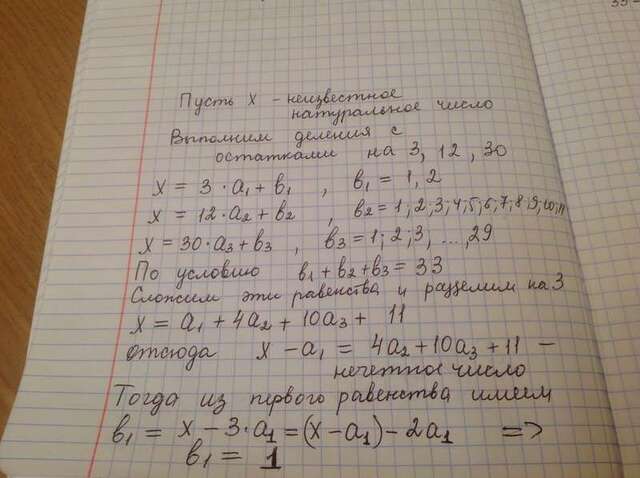 Пусть х – неизвестное
натуральное число
Выполним деления с
остатками на 3, 12, 30
х = 3·a₁ + в₁ , в₁ = 1, 2
х = 12·a₂ + в₂ , в₂ = 1;2;3;4;5;6;7;8;9;10;11
х = 30·a₃ + в₃ , в₃ = 1; 2; 3, ...,29
По условию в₁ + в₂ + в₃ = 33
Сложим эти равенства и разделим на 3
х = a₁ + 4a₂ + 10a₃ + 11
отсюда х – a₁ = 4a₂ + 10a₃ + 11 –
нечетное число
Тогда из первого равенства имеем
в₁ = х – 3·a₁ = (х – a₁) – 2a₁ =>
в₁ = 1